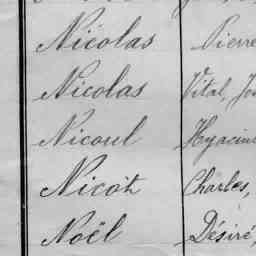 Nicolas Pierre
Nicolas Vital,
Nicoul
Nicot Charles,
Noël Désiré,